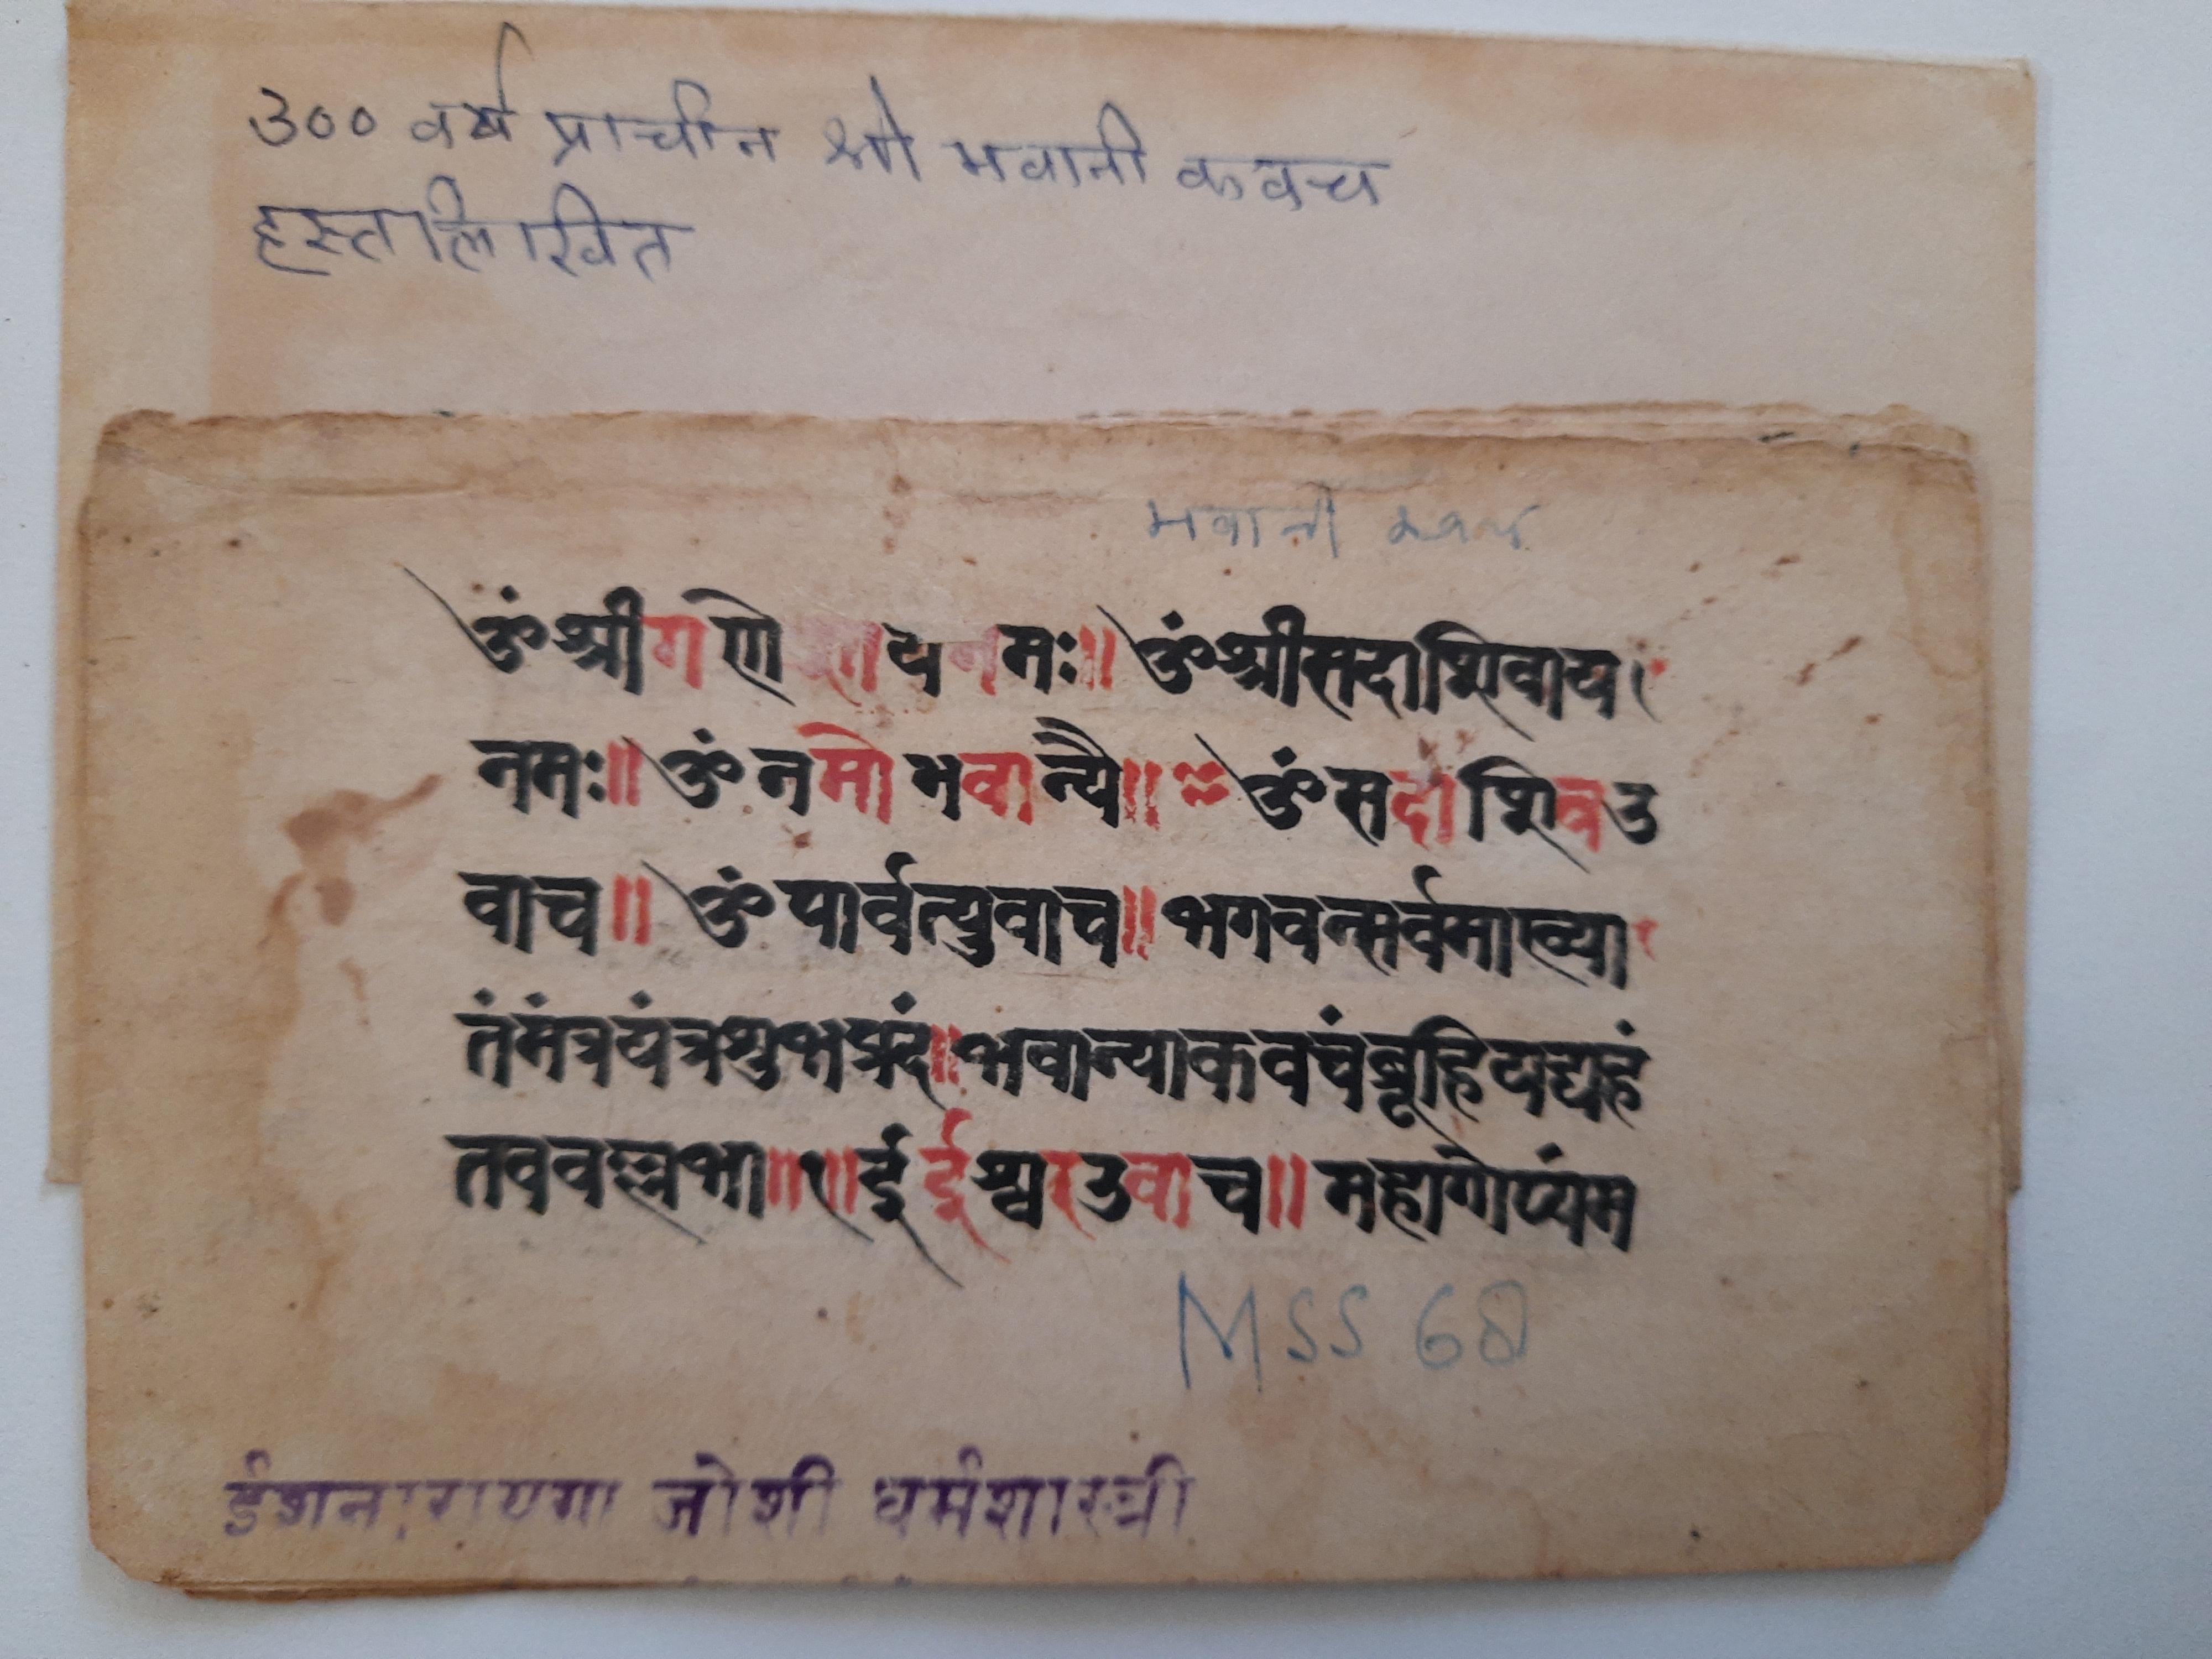 300 वर्ष प्राचीन श्री भवानी कवच
हस्तलिखित
भवानी कवच
ॐश्रीगणेशायनमः॥ ॐश्रीसदाशिवाय।
नमः॥ ॐनमोभवान्यै॥ ॐसदाशिवउ
वाच॥ ॐपार्वत्युवाच॥भगवन्सर्वमाख्या
तंमंत्रयंत्रशुभप्रदं॥भवान्याकवचंब्रूहियद्यहं
तववल्लभा॥१॥ईईश्वरउवाच॥महागोप्यंम
MSS 68
ईशनारायण जोशी धर्मशास्त्री